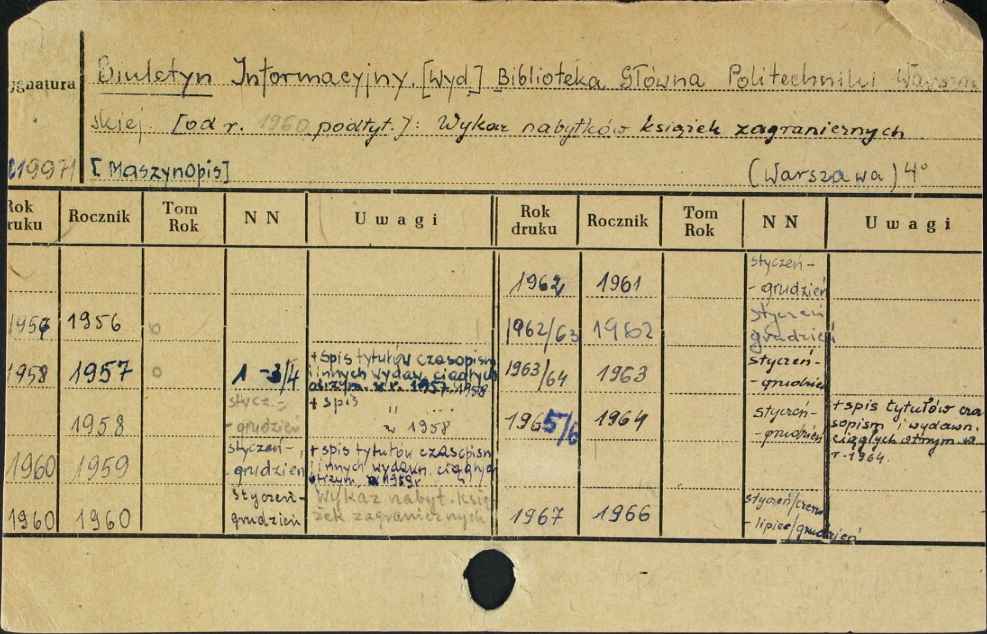 Biuletyn Informacyjny. [Wyd.] Biblioteka Główna Politechniki Warszaw
ygnatura
skiej. [od r. 1960 podtyt.]: Wykaz nabytków książek zagranicznych
21997 [Maszynopis] (Warszawa) 4°
Rok druku Rocznik Tom Rok NN Uwagi Rok druku Rocznik Tom Rok NN Uwagi
1962 1961 styczeń-
-grudzień
1956 0 1962/63 1962 styczeń
grudzień
1958 1957 0 1-3/4 + spis tytułów czasopism
i innych wydaw. ciągłych
otrzym. w r. 1957-1958
1963/64 1963 styczeń-
-grudzień
1958 stycz.-
-grudzień
+ spis " ....
w 1958
1965/6 1964 styczeń-
-grudzień
+ spis tytułów cza
sopism i wydawn.
ciągłych otrzym. w
r. 1964.
1960 1959 styczeń-
-grudzień
+ spis tytułów czasopism
i innych wydawn. ciągłych
otrzym. w 1959 r.
1960 1960 styczeń-
grudzień
Wykaz nabyt. ksią-
żek zagranicznych
1967 1966 styczeń/czerw
- lipiec/grudzień